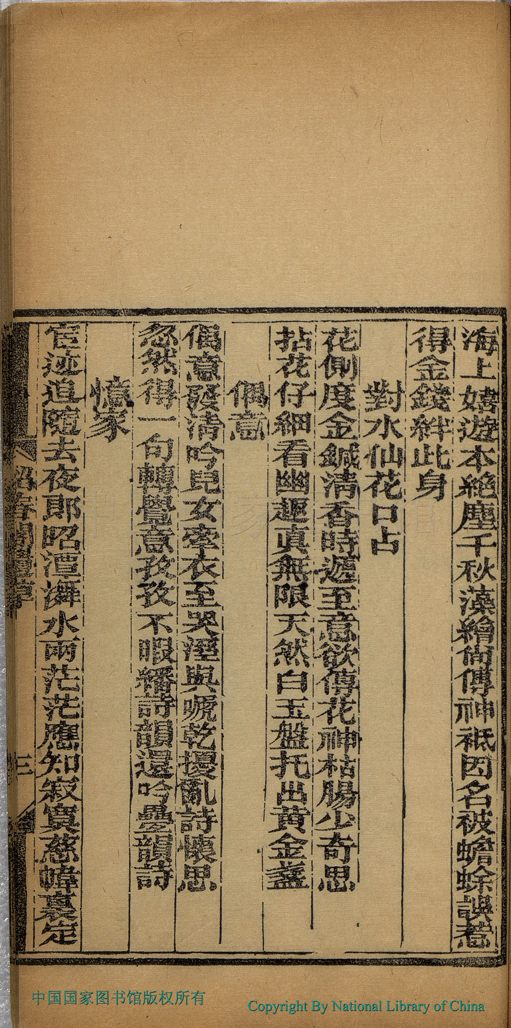 海上嬉遊本絶塵千秋藻繪尚傳神祗因名被蟾蜍誤惹
得金錢絆此身
對水仙花口占
花側度金鍼清香時遞至意欲傳花神枯腸少奇思
拈花仔細看幽趣眞無限天然白玉盤托出黃金盞
偶意
偶意發清吟兒女牽衣至哭溼與嗁乾擾亂詩懷思
忽然得一句轉覺意孜孜不暇繙詩韻還吟疊韻詩
憶家
宦迹追隨去夜郎昭潭潕水兩茫茫應知寂寞慈幃裏定
中国国家图书馆版权所有
Copyright By National Library of China